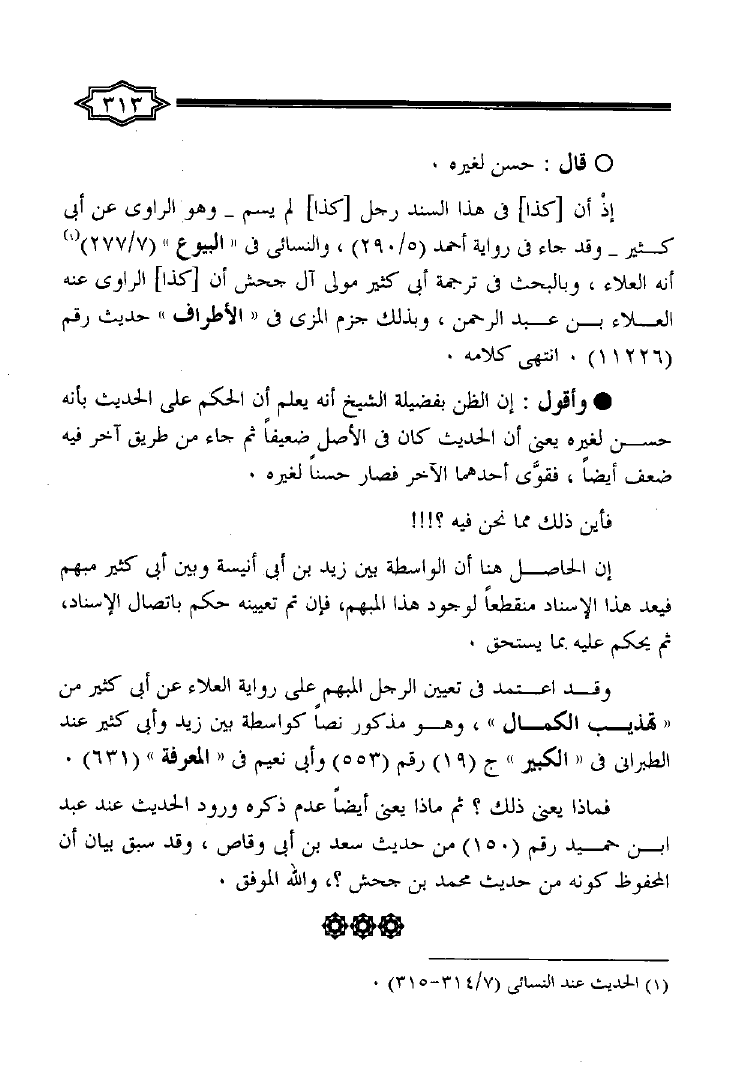 ٣١٣
○ قال : حسن لغيره .
إذْ أن [كذا] فى هذا السند رجل [كذا] لم يسم ـ وهو الراوى عن أبى
كـثير ـ وقد جاء فى رواية أحمد (٢٩٠/٥) ، والنسائى فى « البيوع » (٢٧٧/٧)(١)
أنه العلاء ، وبالبحث فى ترجمة أبى كثير مولى آل جحش أن [كذا] الراوى عنه
العـــلاء بـــن عـــبد الرحمن ، وبذلك جزم المزى فى « الأطراف » حديث رقم
(١١٢٢٦) . انتهى كلامه .
● وأقول : إن الظن بفضيلة الشيخ أنه يعلم أن الحكم على الحديث بأنه
حســـن لغيره يعنى أن الحديث كان فى الأصل ضعيفاً ثم جاء من طريق آخر فيه
ضعف أيضاً ، فقوَّى أحدهما الآخر فصار حسناً لغيره .
فأين ذلك مما نحن فيه ؟!!!
إن الحاصـــل هنا أن الواسطة بين زيد بن أبى أنيسة وبين أبى كثير مبهم
فيعد هذا الإسناد منقطعاً لوجود هذا المبهم، فإن تم تعيينه حكم باتصال الإسناد،
ثم يحكم عليه بما يستحق .
وقـــد اعـــتمد فى تعيين الرجل المبهم على رواية العلاء عن أبى كثير من
« تهذيـــب الكمـــال » ، وهـــو مذكور نصاً كواسطة بين زيد وأبى كثير عند
الطبرانى فى « الكبير » ج (١٩) رقم (٥٥٣) وأبى نعيم فى « المعرفة » (٦٣١) .
فماذا يعنى ذلك ؟ ثم ماذا يعنى أيضاً عدم ذكره ورود الحديث عند عبد
ابـــن حمـــيد رقم (١٥٠) من حديث سعد بن أبى وقاص ، وقد سبق بيان أن
المحفوظ كونه من حديث محمد بن جحش ؟، والله الموفق .
(١) الحديث عند النسائى (٣١٤/٧-٣١٥) .